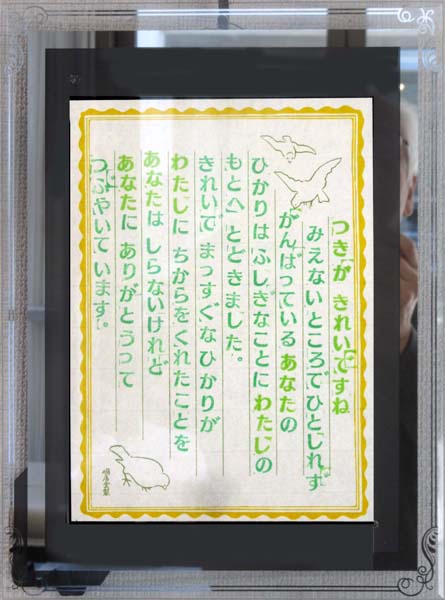 つきが きれいですね
みえないところでひとしれず
がんばっている あなたの
ひかりは ふしぎなことに わたしの
もとへ とどきました。
きれいで まっすぐな ひかりが
わたしに ちからをくれたことを
あなたは しらないけれど
あなたに ありがとうって
つぶやいています。